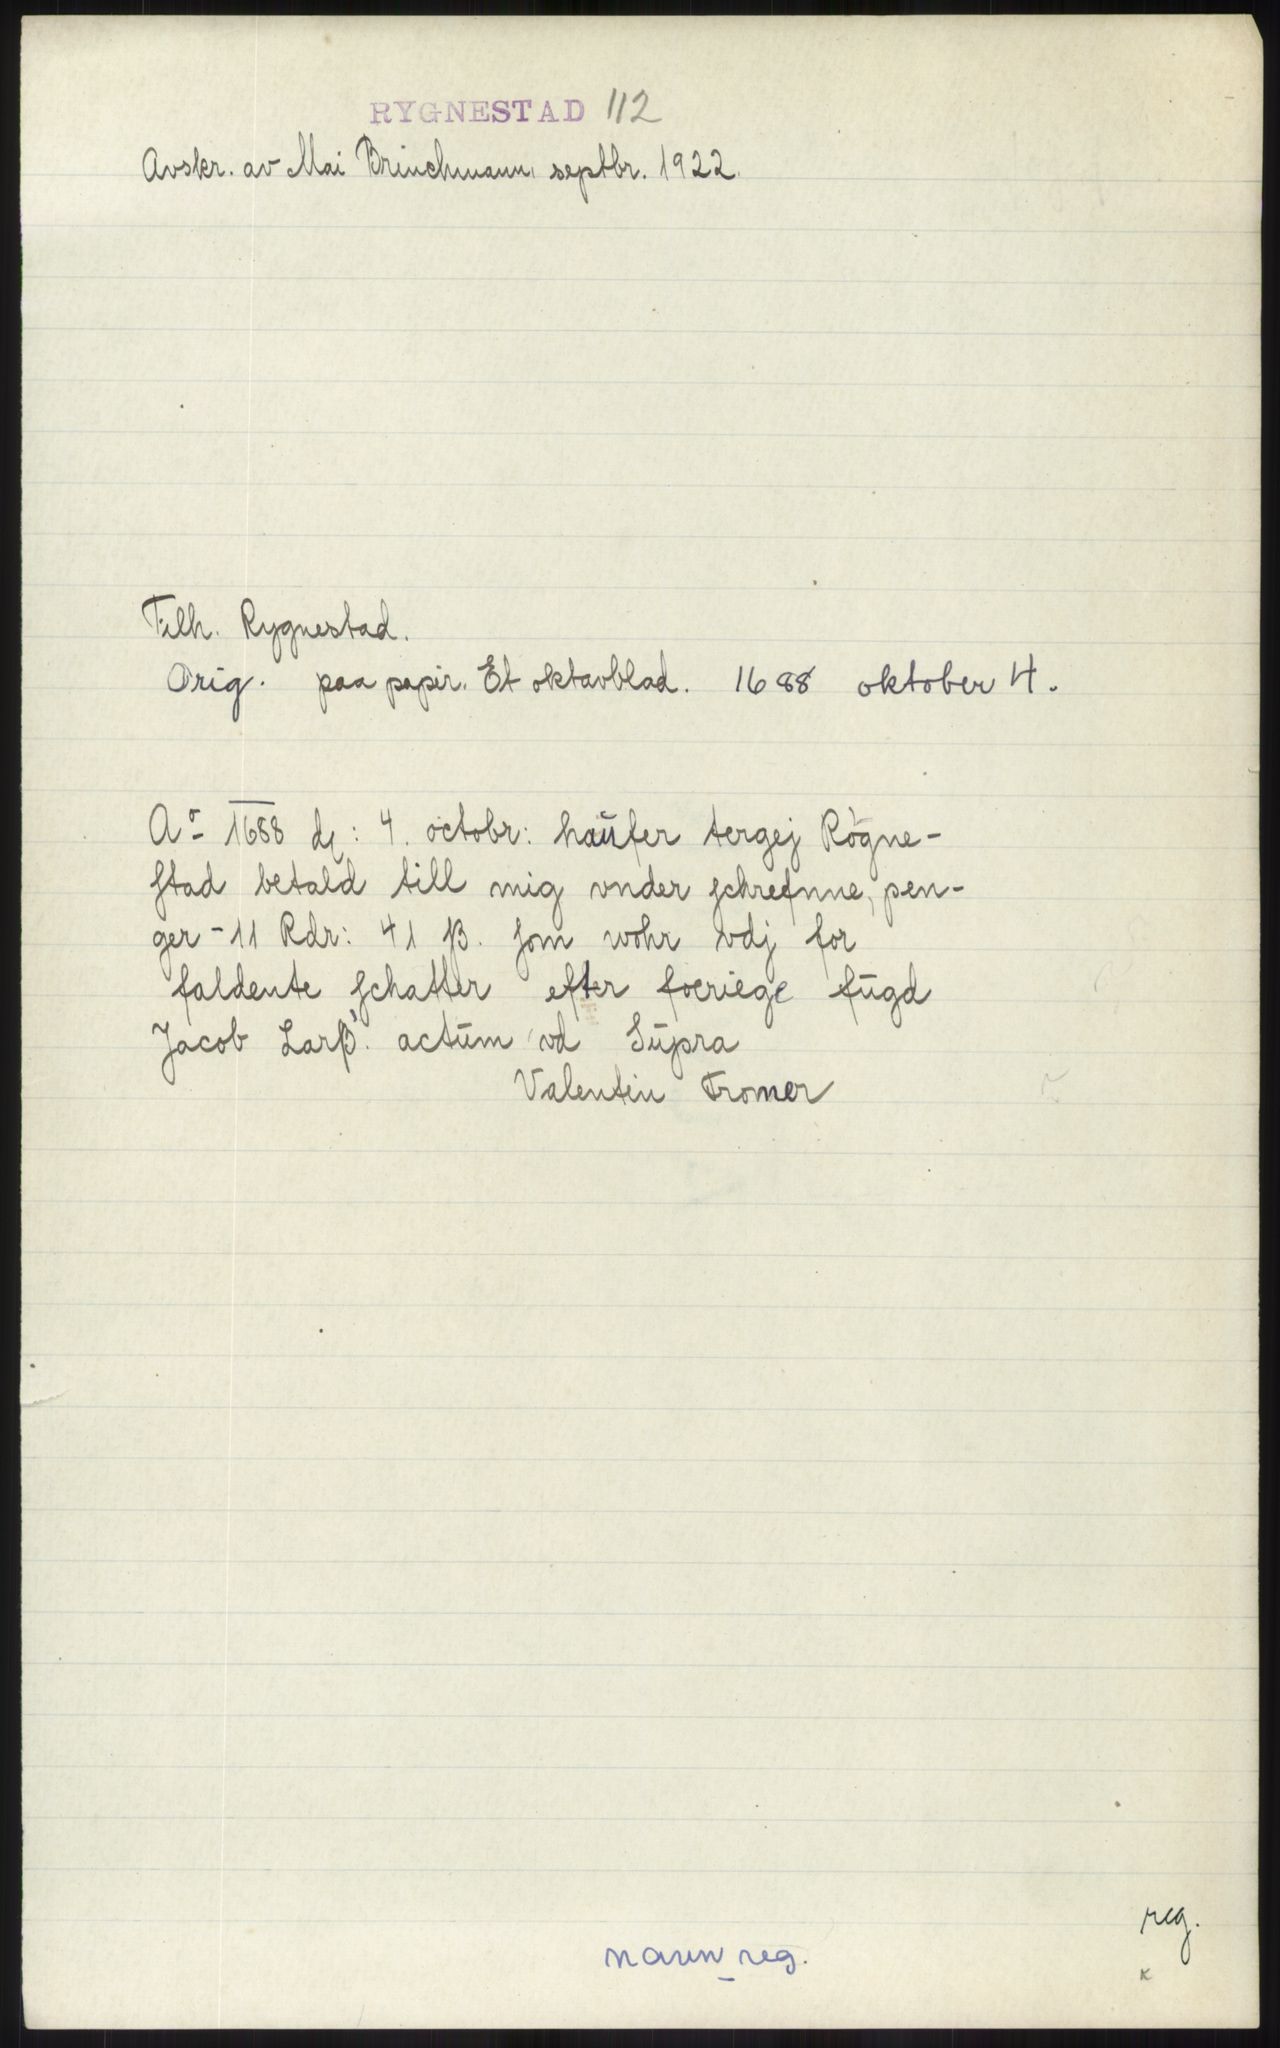 RYGNESTAD 112
Avskr. av Mai Brinchmann, septbr. 1922.
Tilh. Rygnestad.
Orig. paa papir. Et oktavblad. 1688 oktober 4.
Ao 1688 d: 4. octobr: haüfer tergej Røgne-
stad betald till mig vnder schrefnne, pen-
ger - 11 Rdr: 41 ß. som wohr vdj for
faldente schatter efter foeriege fügd
Jacob Larß. actüm vd Süpra
Valentin Fromer
reg.
navn reg.
x